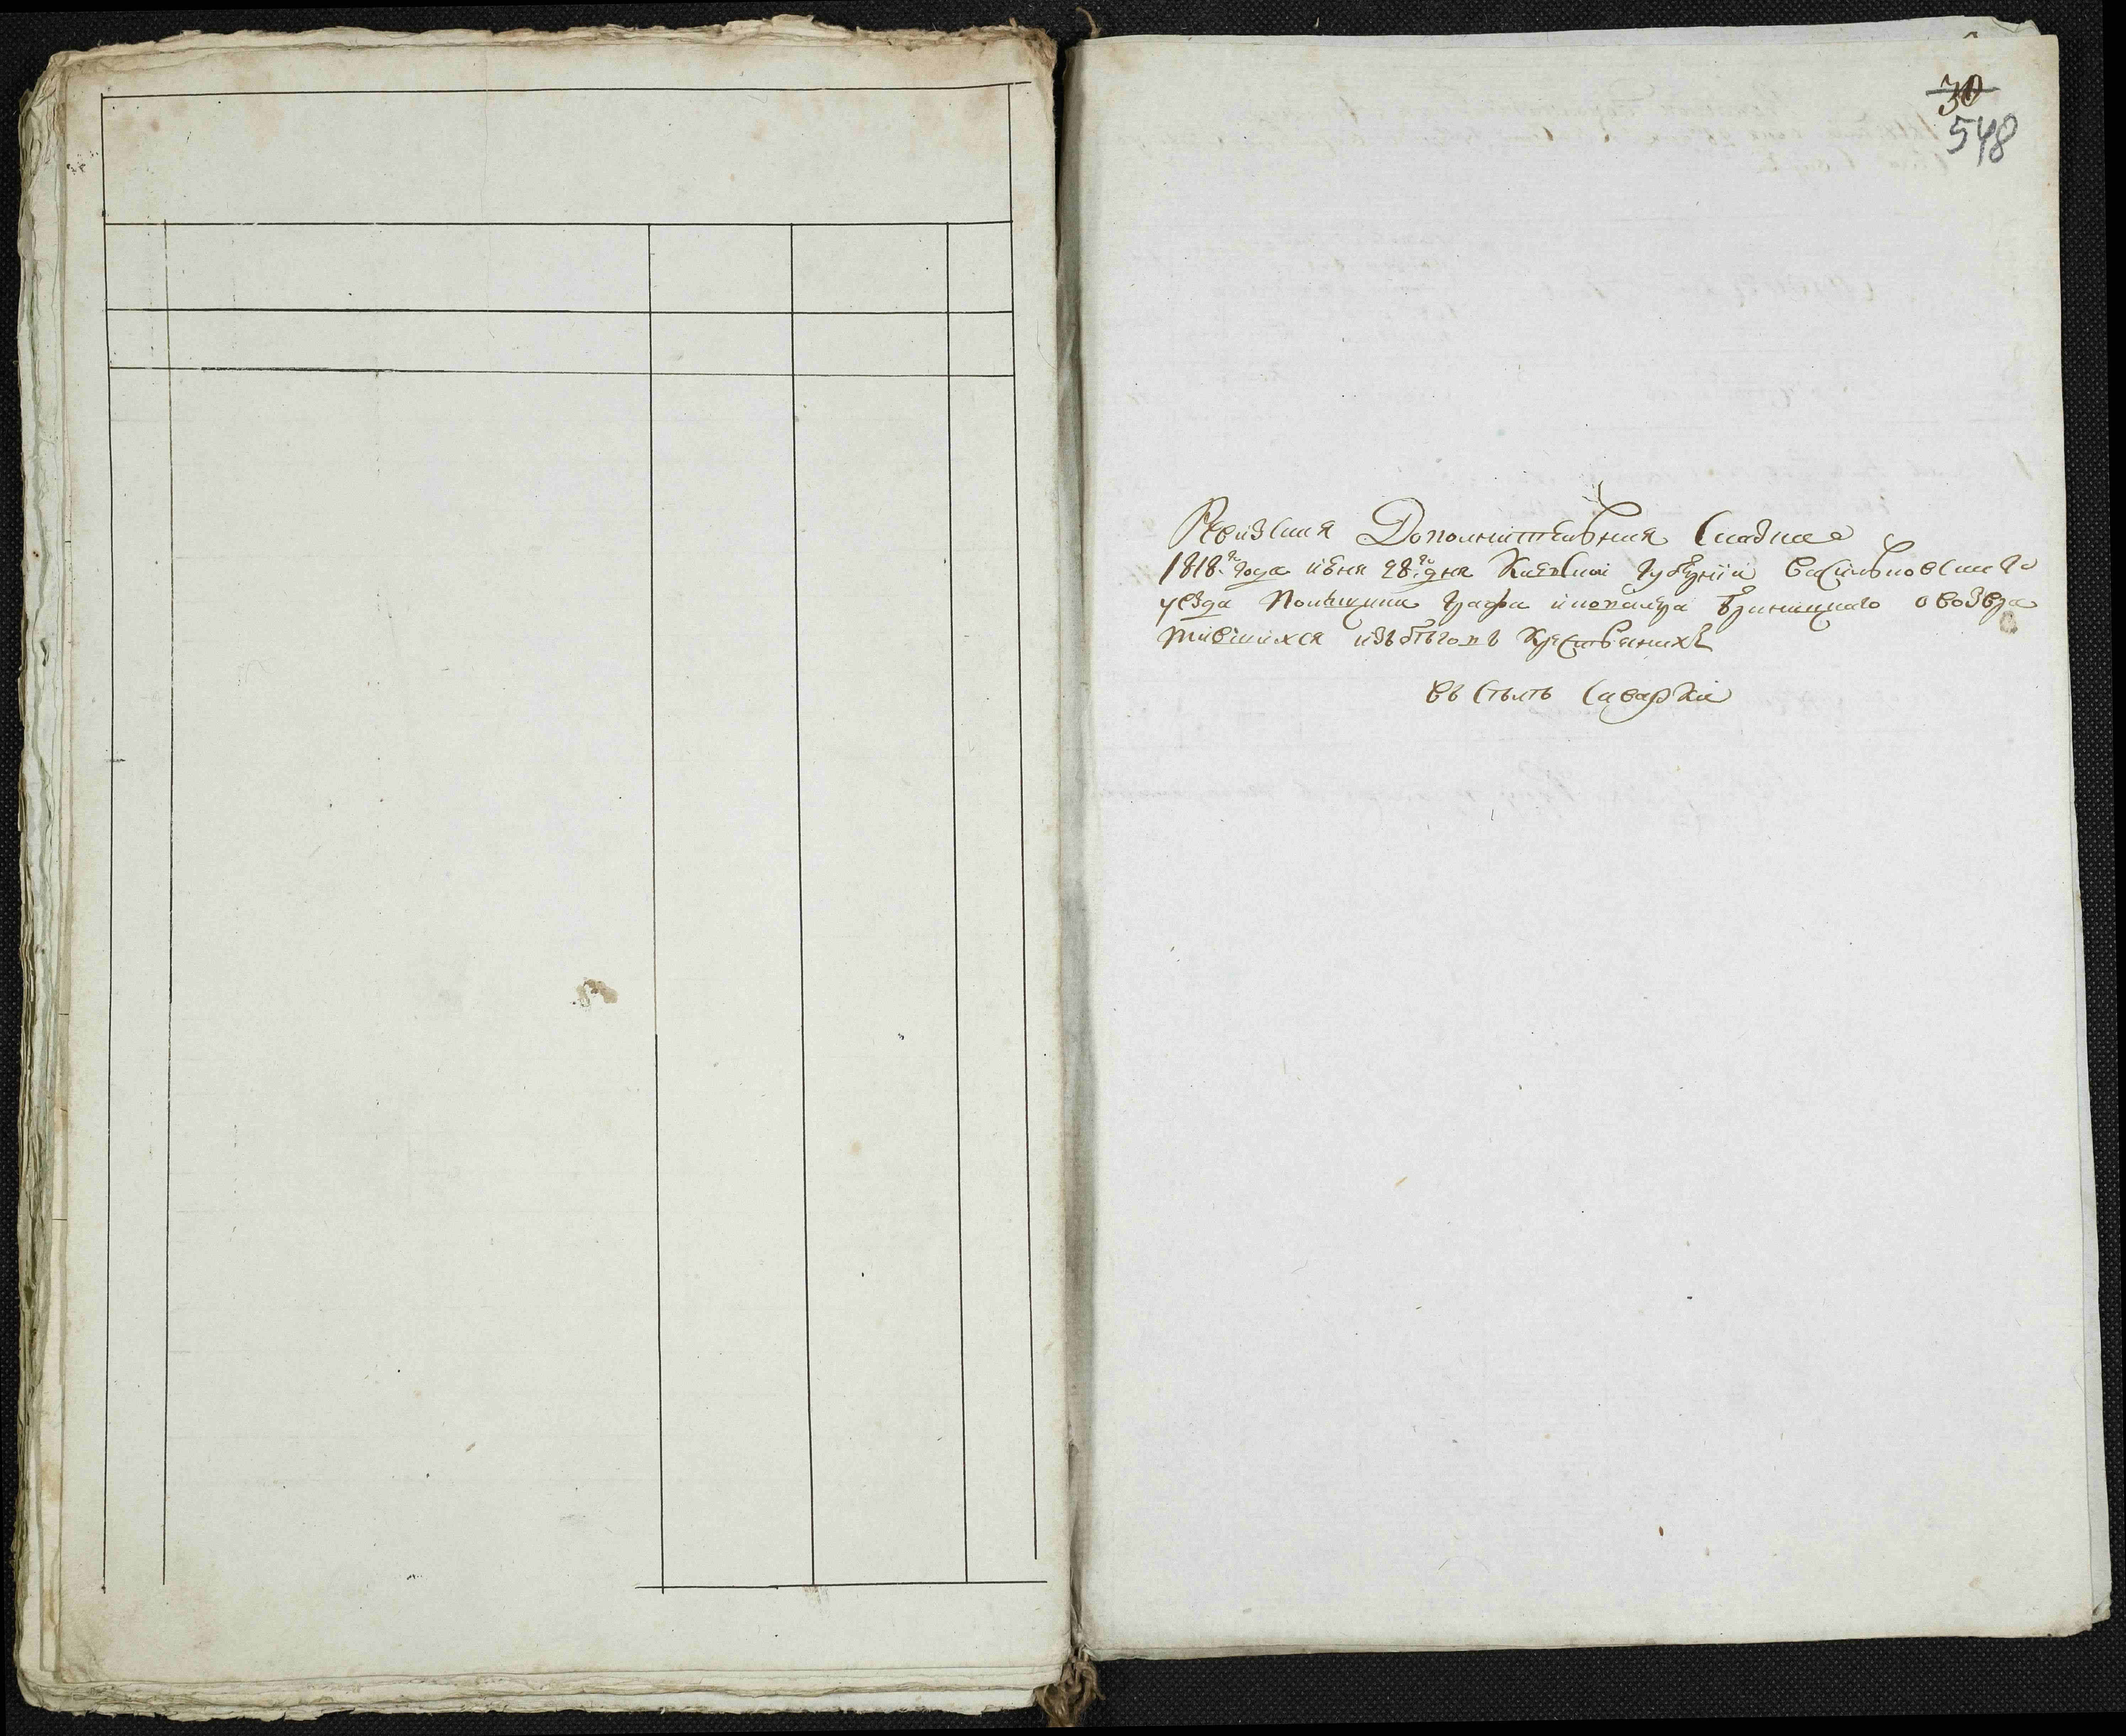 30
548
Ревизская Дополнительная Сказка
1818го года июня 28го дня Киевской губернии Васильковскаго
уезда Помещика графа и кавалера Браницкаго о возвра
тившихся изъ бѣговъ крестьянихъ
въ Селѣ Саварки